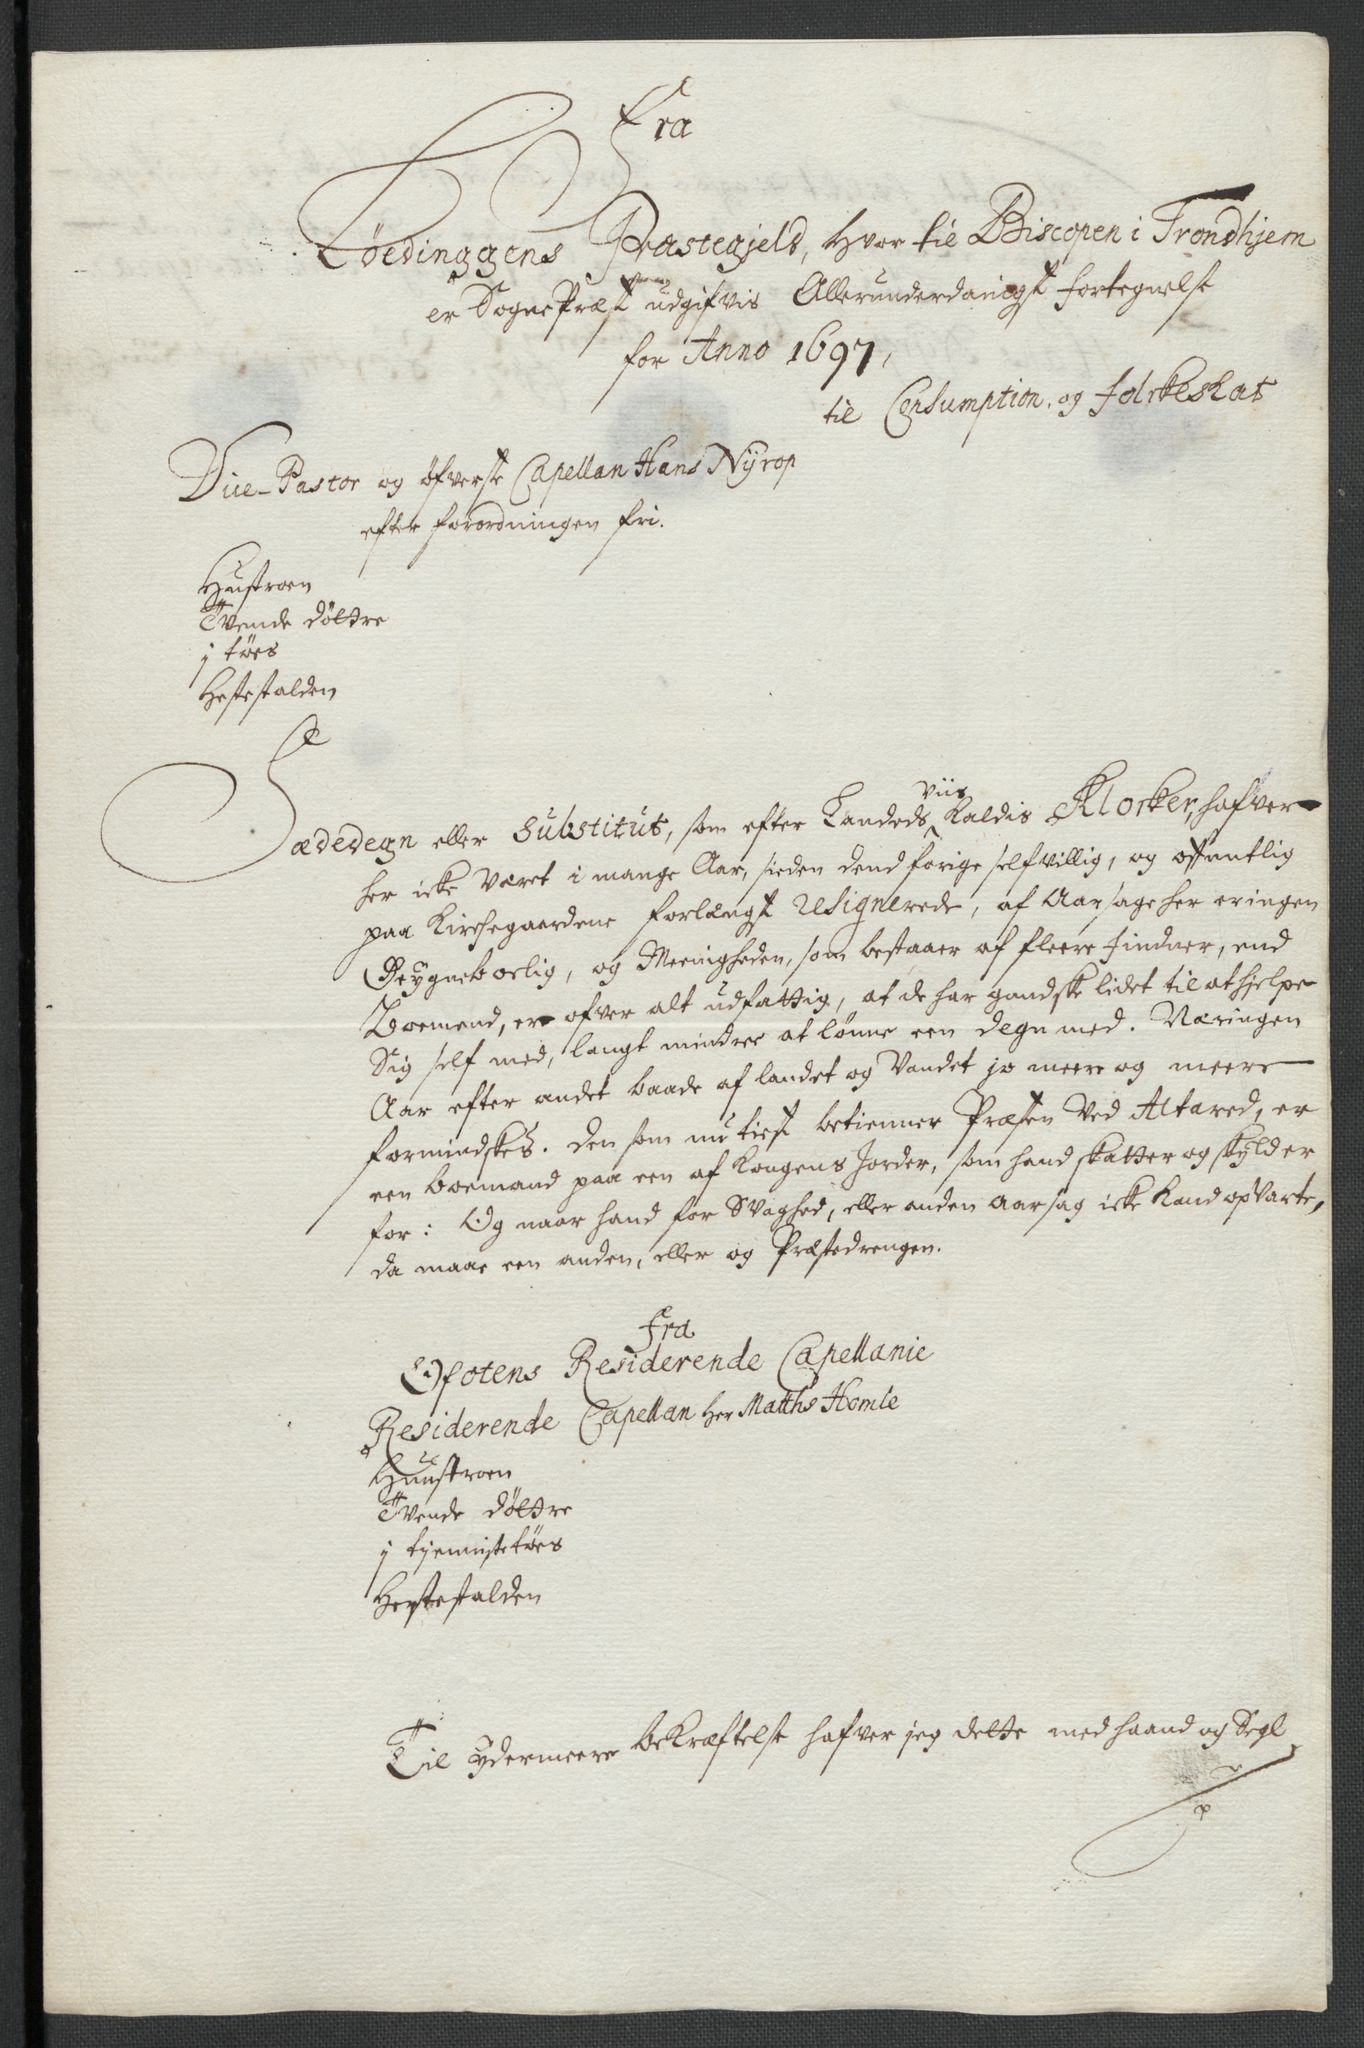 Fra
Löedinggens Præstegjeld, hvor til Biscopen i Trondhjem
er SognePræst udgifvis Allerunderdanigst fortegnelse
for Anno 1697,
til Consumption, og folckeskat
Vice-Pastor og öfverste Capellan Hans Nÿrop
efter forordningen fri.
Hustroen
Tvende döttre
j töes
Hestestalden
Sædedegn eller Substitut, som efter Landeds
viis
Kaldis Klocker, hafver
her icke været i mange Aar, sieden dend forige selfvillig, og offentlig
paa Kirchegaardene forlængst resignerede, af Aarsage her er ingen
boelig, og Meenigheden, som bestaaer af fleere finder, end
Boemend, er ofver alt udfattig, at de har gandske lidet til at hjelpe
Sig self med, langt mindree at lönne een degn med. Næringen
Aar efter andet baade af landet og Vandet jo meere og meere
formindskes. Den som nu tiest betienner Præsten Ved Altared, er
een boemand paa een af Kongens Jorder, som hand skatter og skÿlder
for: Og naar hand for Svaghed, eller anden aarsag icke Kand opvarte,
da maae een anden, eller og Præstedrengen.
Fra
Ofotens Residerende Capellanie
Residerende Capellan Her Matths Homle
Huustroen
Tvende döttre
j tjennistetöes
Hestestalden
Til ÿdermeere bekræftelse hafver jeg dette med haand og Segl